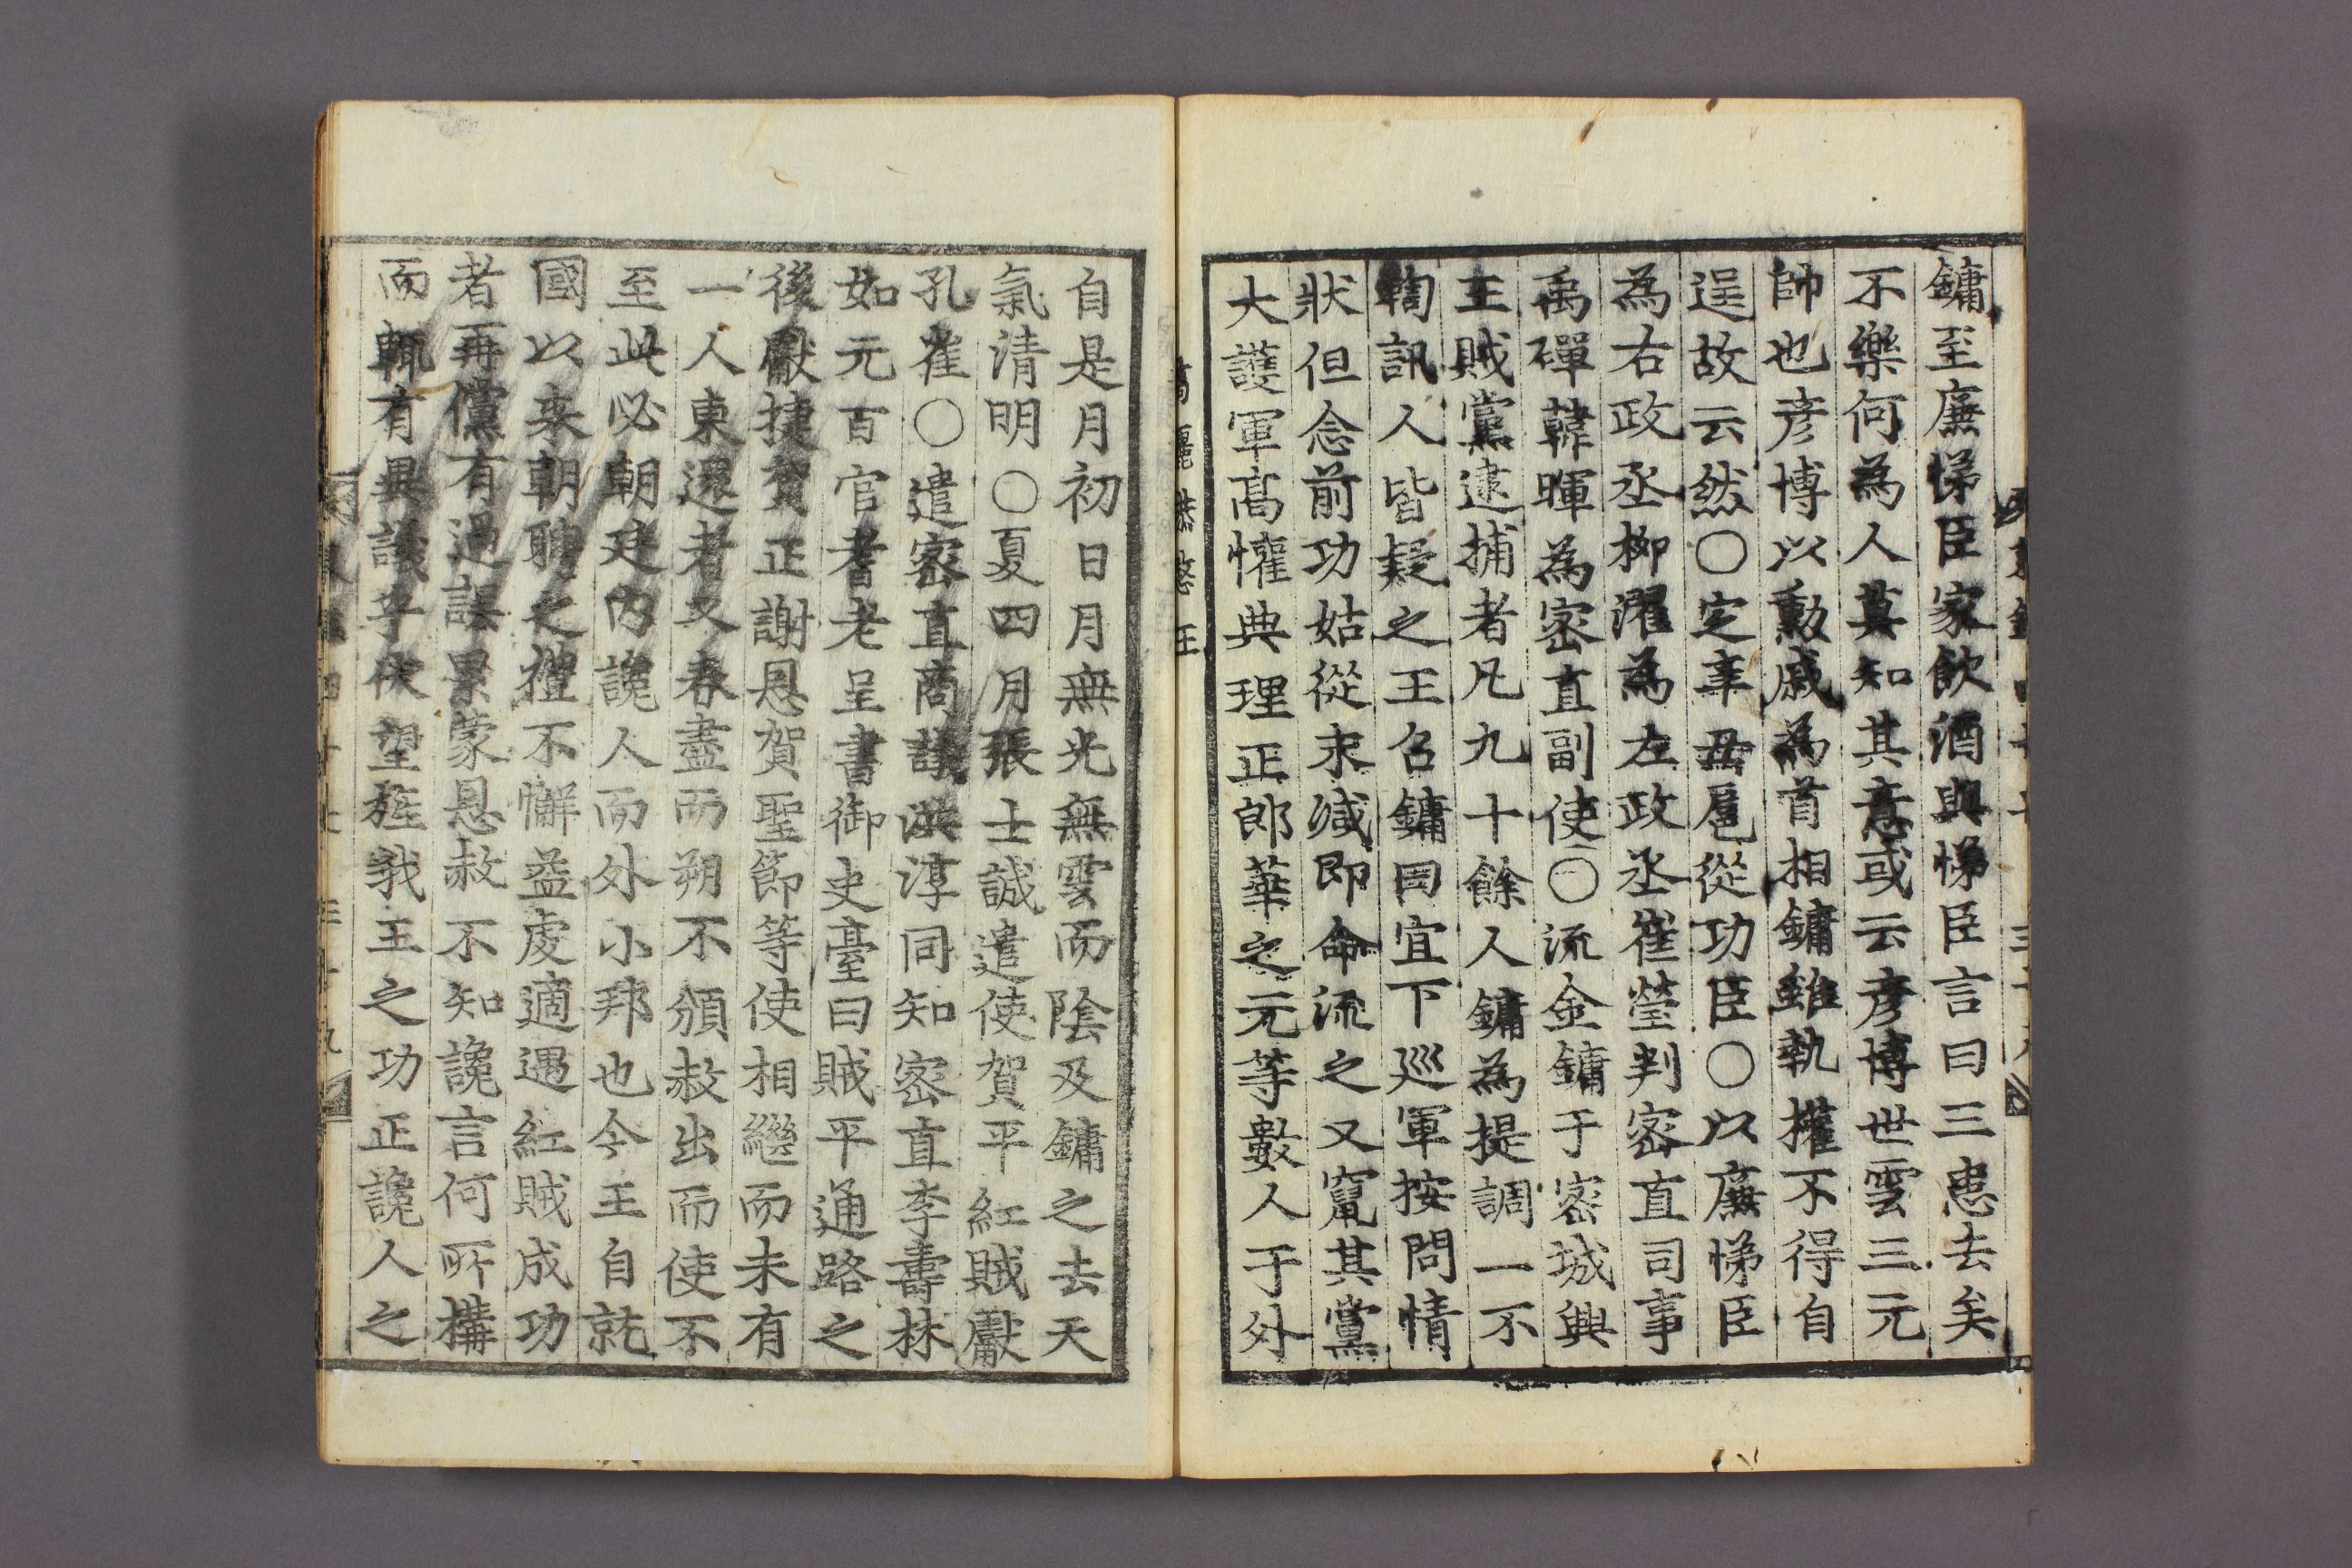 鏞至廉悌臣家飲酒與悌臣言曰三患去矣
不樂何為人莫知其意或云彦博世雲三元
帥也彦博以勳戚為首相鏞雖執權不得自
逞故云然○定辛丑扈從功臣○以廉悌臣
為右政丞柳濯為左政丞崔瑩判密直司事
禹磾韓暉為密直副使○流金鏞于密城興
王賊黨逮捕者凡九十餘人鏞為提調一不
鞫訊人皆疑之王召鏞曰宜下巡軍按問情
狀但念前功姑從末減即命流之又竄其黨
大護軍高懽典理正郎華之元等數人于外
高麗恭愍王
自是月初日月無光無雲而陰及鏞之去天
氣清明○夏四月張士誠遣使賀平紅賊獻
孔雀○遣密直商議洪淳同知密直李壽林
如元百官耆老呈書御史臺曰賊平通路之
後獻捷賀正謝恩賀聖節等使相繼而未有
一人東還者又春盡而朔不頒赦出而使不
至此必朝廷內讒人而外小邦也今王自就
國以来朝聘之禮不懈益虔適遇紅賊成功
者再儻有過誤累蒙恩赦不知讒言何所構
而輒有異議乎伏望旌我王之功正讒人之